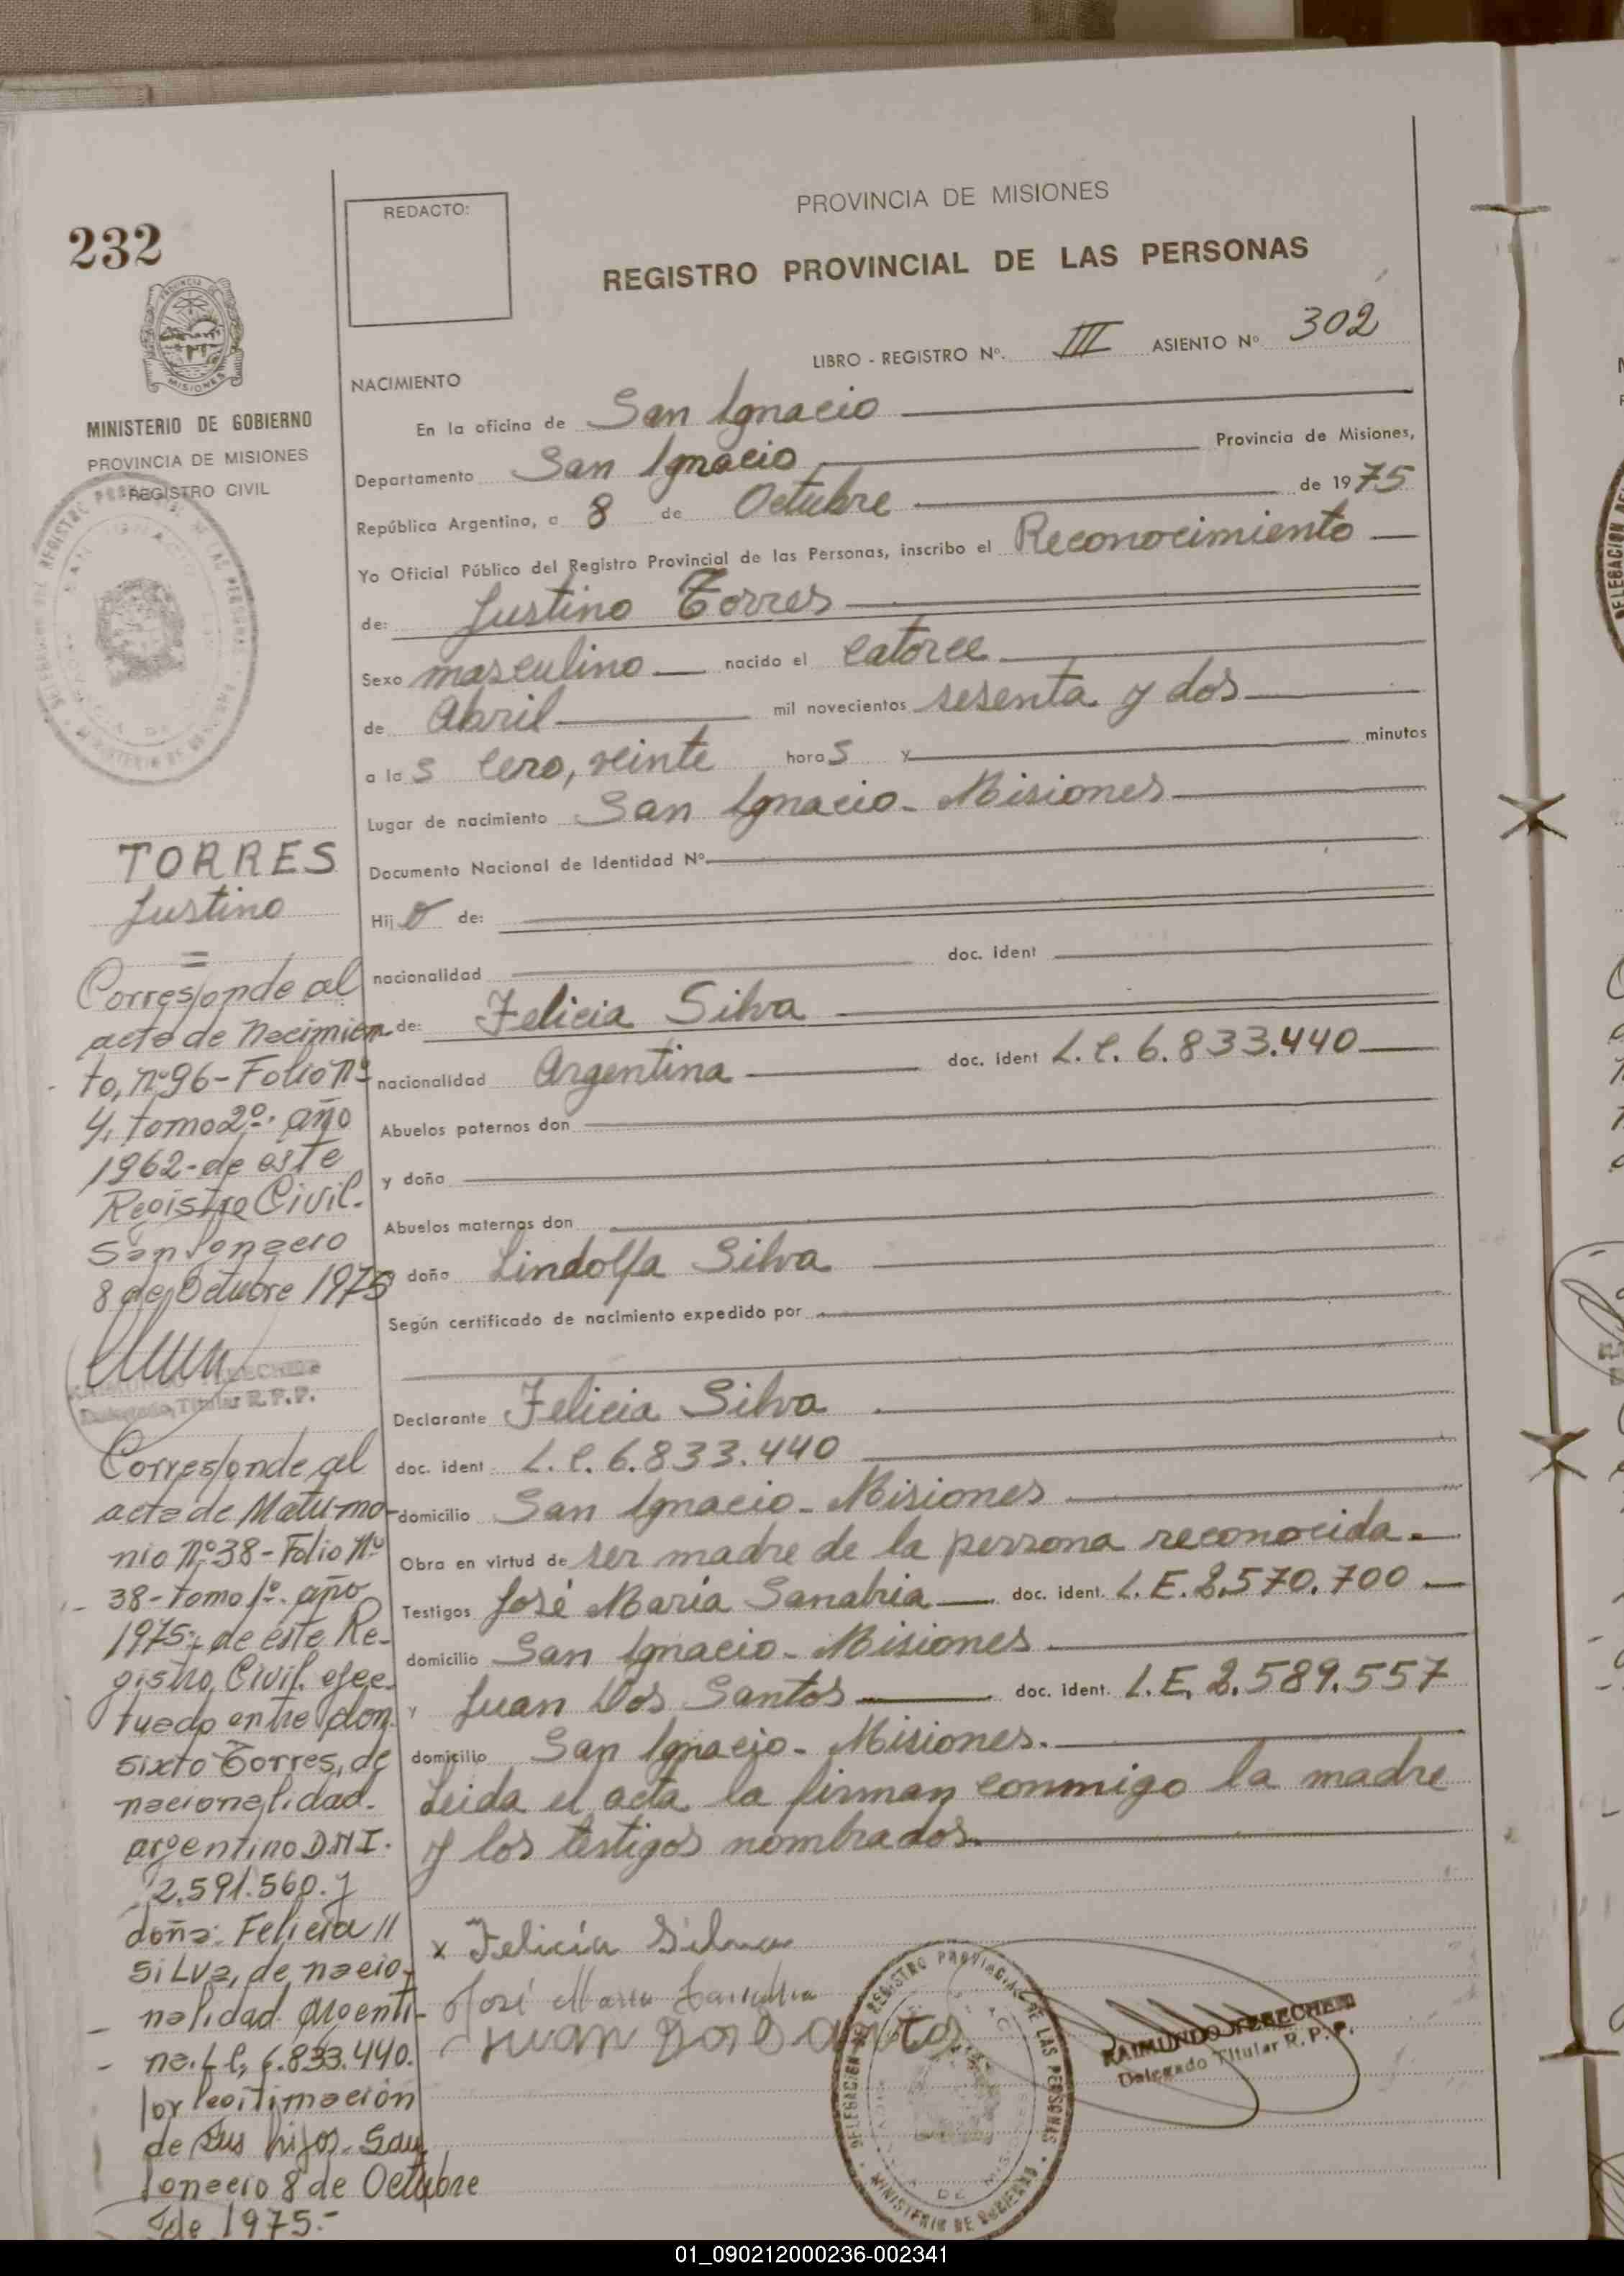 232
REDACTO:
PROVINCIA DE MISIONES
REGISTRO PROVINCIAL DE LAS PERSONAS
LIBRO - REGISTRO Nº. III ASIENTO Nº 302
MINISTERIO DE GOBIERNO
PROVINCIA DE MISIONES
REGISTRO CIVIL
NACIMIENTO
En la oficina de San Ignacio
Departamento San Ignacio Provincia de Misiones,
República Argentina, a 8 de Octubre de 1975
Yo Oficial Público del Registro Provincial de las Personas, inscribo el Reconocimiento
de: Justino Torres
Sexo masculino nacido el catorce
de Abril mil novecientos sesenta y dos
a las cero, veinte horas y minutos
Lugar de nacimiento San Ignacio - Misiones
Documento Nacional de Identidad Nº
Hijo de:
nacionalidad doc. ident
de: Felicia Silva
nacionalidad Argentina doc. ident L.C. 6.833.440
Abuelos paternos don
y doña
Abuelos maternos don
doña Lindolfa Silva
Según certificado de nacimiento expedido por
Declarante Felicia Silva
doc. ident L.C. 6.833.440
domicilio San Ignacio - Misiones
Obra en virtud de ser madre de la persona reconocida.
Testigos José María Sanabria doc. ident. L.E. 2.570.700
domicilio San Ignacio - Misiones
y Juan Dos Santos doc. ident. L.E. 2.589.557
domicilio San Ignacio - Misiones.
Leida el acta la firman conmigo la madre
y los testigos nombrados.
x Felicia Silva
José María Sanabria
Juan Dos Santos
RAIMUNDO TERECHEN
Delegado Titular R.P.P.
TORRES
Justino
=
Corresponde al
acta de Nacimien
to, nº 96 - Folio nº
4, tomo 2º. año
1962 - de este
Registro Civil.
San Ignacio
8 de Octubre 1975
Delegado Titular R.P.P.
Corresponde al
acta de Matrimo-
nio nº 38 - Folio Nº
38 - tomo 1º. año
1975 - de este Re-
gistro Civil. efec-
tuado entre don.
Sixto Torres, de
nacionalidad.
argentino D.N.I.
2.591.560. y
doña: Felicia //
Silva, de nacio-
nalidad argenti-
na. L.C. 6.833.440.
por legitimación
de sus hijos. San
Ignacio 8 de Octubre
de 1975.-
01_090212000236-002341